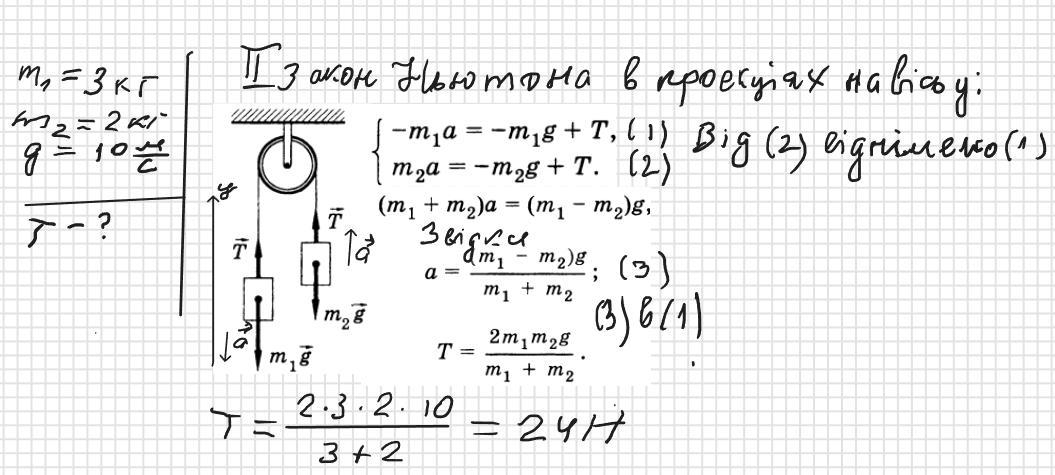 m₁ = 3 кг
m₂ = 2 кг
g = 10 м/с
T - ?
II Закон Ньютона в проекціях на вісь y:
-m₁a = -m₁g + T, (1)
m₂a = -m₂g + T. (2)
Від (2) віднімемо (1)
(m₁ + m₂)a = (m₁ - m₂)g,
Звідки
a = (m₁ - m₂)g / m₁ + m₂ ; (3)
(3) в (1)
T = 2m₁m₂g / m₁ + m₂ .
y
T⃗
T⃗
a⃗
m₂g⃗
a⃗
m₁g⃗
T = 2·3·2·10 / 3+2 = 24 Н